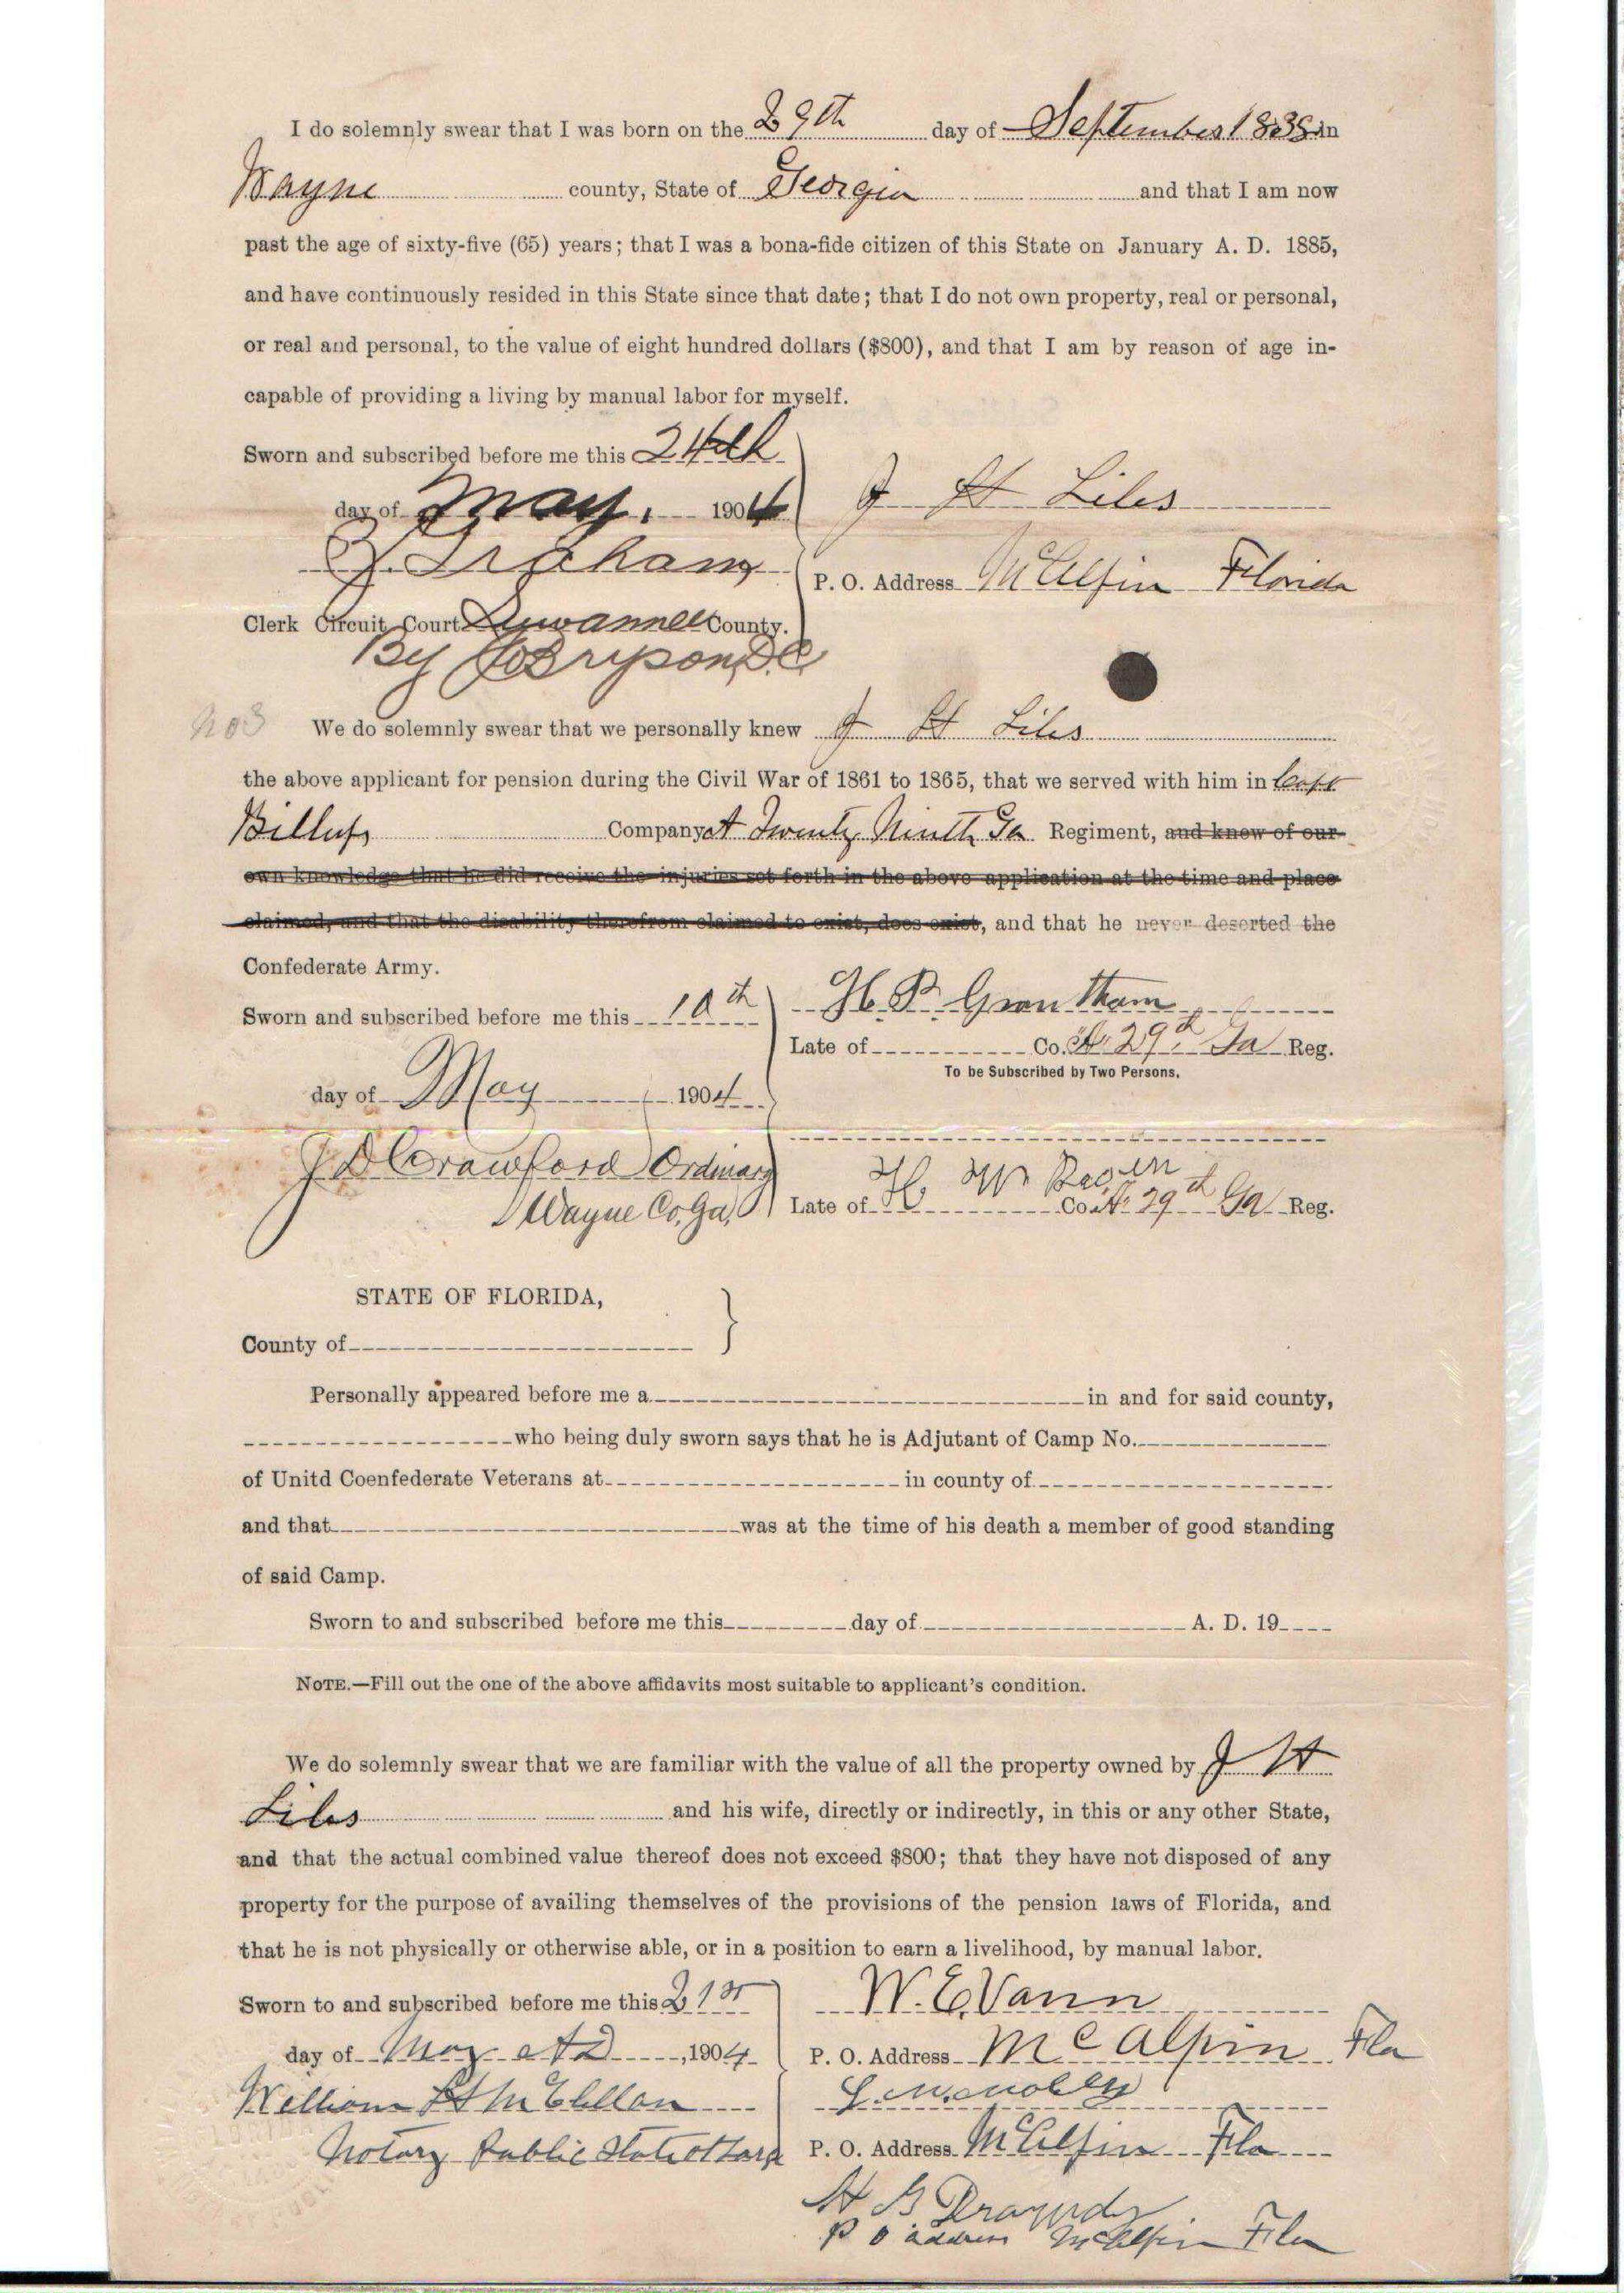 I do solemnly swear that I was born on the 29th day of September 1838 in
Wayne county, State of Georgia and that I am now
past the age of sixty-five (65) years; that I was a bona-fide citizen of this State on January A. D. 1885,
and have continuously resided in this State since that date; that I do not own property, real or personal,
or real and personal, to the value of eight hundred dollars ($800), and that I am by reason of age in-
capable of providing a living by manual labor for myself.
Sworn and subscribed before me this 24th
day of May, 1904
J H Liles
J. Graham
P. O. Address McAlpin Florida
Clerk Circuit Court Suwannee County.
By Bryson, D.C.
No 3
We do solemnly swear that we personally knew J H Liles
the above applicant for pension during the Civil War of 1861 to 1865, that we served with him in Capt
Billups Company A Twenty Ninth Ga Regiment, and knew of our
own knowledge that he did receive the injuries set forth in the above application at the time and place
claimed, and that the disability therefrom claimed to exist, does exist, and that he never deserted the
Confederate Army.
Sworn and subscribed before me this 10th
H. P. Grantham
Late of Co. "A" 29th Ga Reg.
To be Subscribed by Two Persons.
day of May 1904
J D Crawford Ordinary
Wayne Co, Ga,
H W
Late of Co "A" 29th Ga Reg.
STATE OF FLORIDA,
County of
Personally appeared before me a in and for said county,
who being duly sworn says that he is Adjutant of Camp No.
of Unitd Coenfederate Veterans at in county of
and that was at the time of his death a member of good standing
of said Camp.
Sworn to and subscribed before me this day of A. D. 19
NOTE.—Fill out the one of the above affidavits most suitable to applicant's condition.
We do solemnly swear that we are familiar with the value of all the property owned by J H
Liles and his wife, directly or indirectly, in this or any other State,
and that the actual combined value thereof does not exceed $800; that they have not disposed of any
property for the purpose of availing themselves of the provisions of the pension laws of Florida, and
that he is not physically or otherwise able, or in a position to earn a livelihood, by manual labor.
Sworn to and subscribed before me this 21st
W. E. Vann
day of May AD, 1904
P. O. Address McAlpin Fla
William H McClellan
Notary Public State at Large
P. O. Address McAlpin Fla
H G
P O address McAlpin Fla